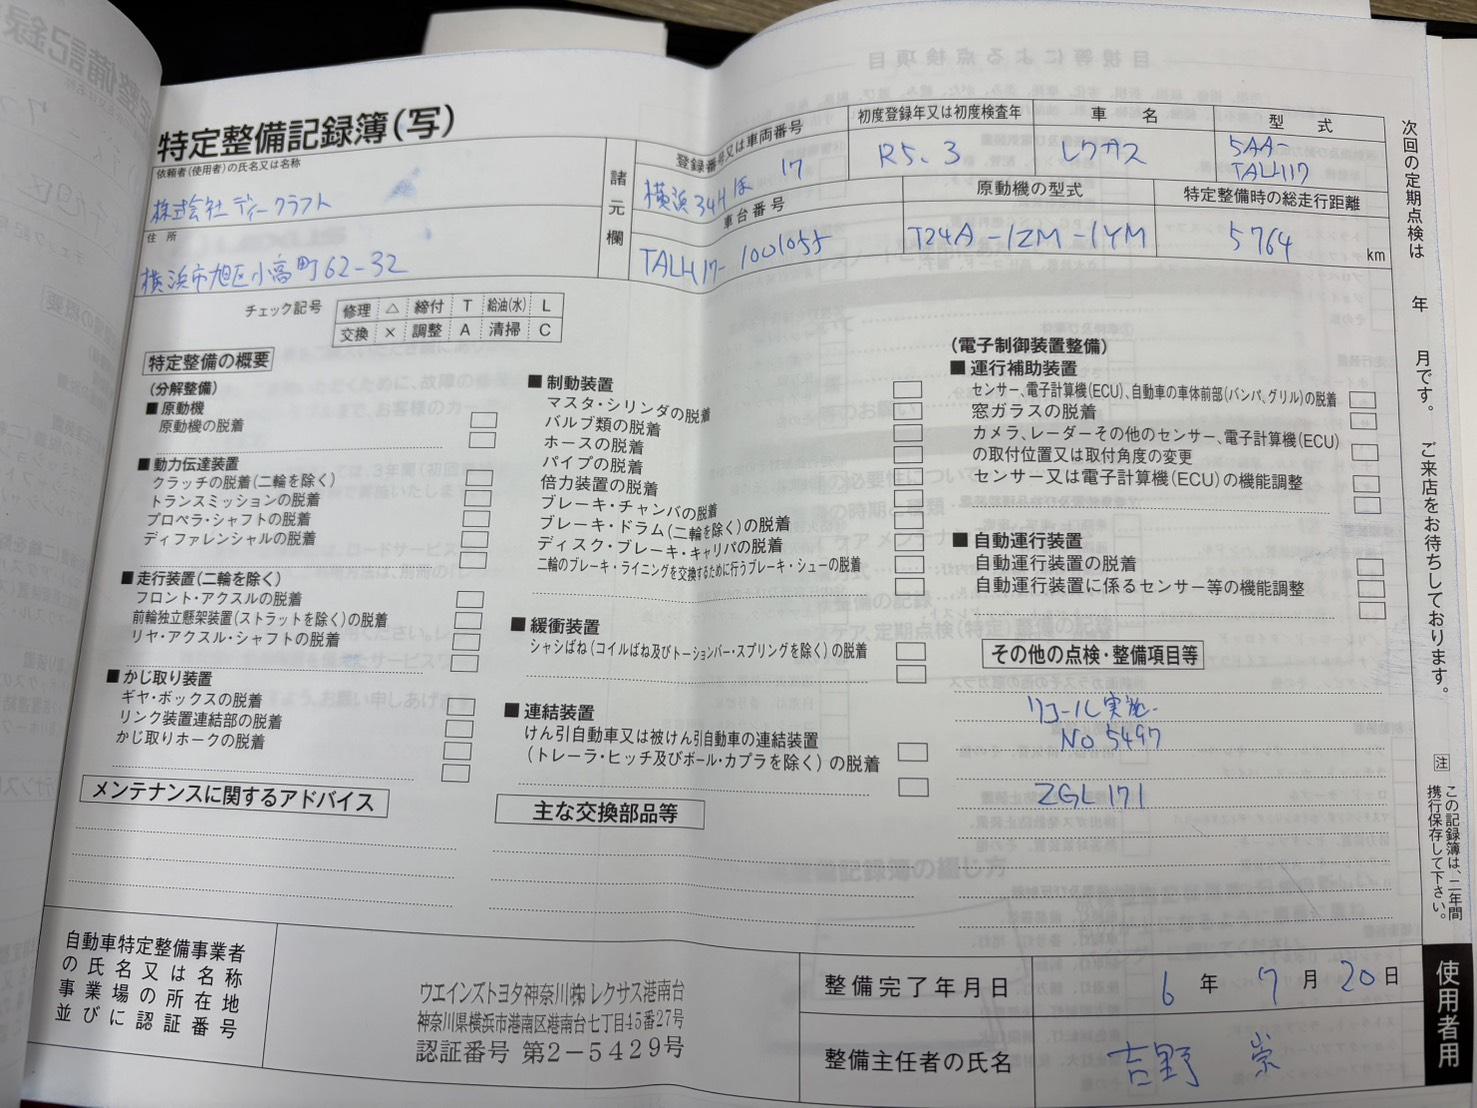 特定整備記録簿(写)
依頼者(使用者)の氏名又は名称
株式会社ディークラフト
住所
横浜市旭区小高町62-32
諸元欄
登録番号又は車両番号
横浜34Hほ 17
初度登録年又は初度検査年
R5.3
車名
レクサス
型式
5AA-
TALH17
車台番号
TALH17-1001055
原動機の型式
T24A-1ZM-1YM
特定整備時の総走行距離
5764 km
チェック記号
修理 △ 締付 T 給油(水) L
交換 × 調整 A 清掃 C
特定整備の概要
(分解整備)
■ 原動機
原動機の脱着
■ 動力伝達装置
クラッチの脱着(二輪を除く)
トランスミッションの脱着
プロペラ・シャフトの脱着
ディファレンシャルの脱着
■ 走行装置(二輪を除く)
フロント・アクスルの脱着
前輪独立懸架装置(ストラットを除く)の脱着
リヤ・アクスル・シャフトの脱着
■ かじ取り装置
ギヤ・ボックスの脱着
リンク装置連結部の脱着
かじ取りホークの脱着
■ 制動装置
マスタ・シリンダの脱着
バルブ類の脱着
ホースの脱着
パイプの脱着
倍力装置の脱着
ブレーキ・チャンバの脱着
ブレーキ・ドラム(二輪を除く)の脱着
ディスク・ブレーキ・キャリパの脱着
二輪のブレーキ・ライニングを交換するために行うブレーキ・シューの脱着
■ 緩衝装置
シャシばね(コイルばね及びトーションバー・スプリングを除く)の脱着
■ 連結装置
けん引自動車又は被けん引自動車の連結装置
(トレーラ・ヒッチ及びボール・カプラを除く)の脱着
(電子制御装置整備)
■ 運行補助装置
センサー、電子計算機(ECU)、自動車の車体前部(バンパ、グリル)の脱着
窓ガラスの脱着
カメラ、レーダーその他のセンサー、電子計算機(ECU)
の取付位置又は取付角度の変更
センサー又は電子計算機(ECU)の機能調整
■ 自動運行装置
自動運行装置の脱着
自動運行装置に係るセンサー等の機能調整
その他の点検・整備項目等
リコール実施
No 5497
ZGL171
メンテナンスに関するアドバイス
主な交換部品等
自動車特定整備事業者
の氏名又は名称
事業場の所在地
並びに認証番号
ウエインズトヨタ神奈川㈱レクサス港南台
神奈川県横浜市港南区港南台七丁目45番27号
認証番号 第2-5429号
整備完了年月日
6年7月20日
整備主任者の氏名
吉野 崇
次回の定期点検は 年 月です。 ご来店をお待ちしております。
注 この記録簿は、二年間
携行保存して下さい。
使用者用